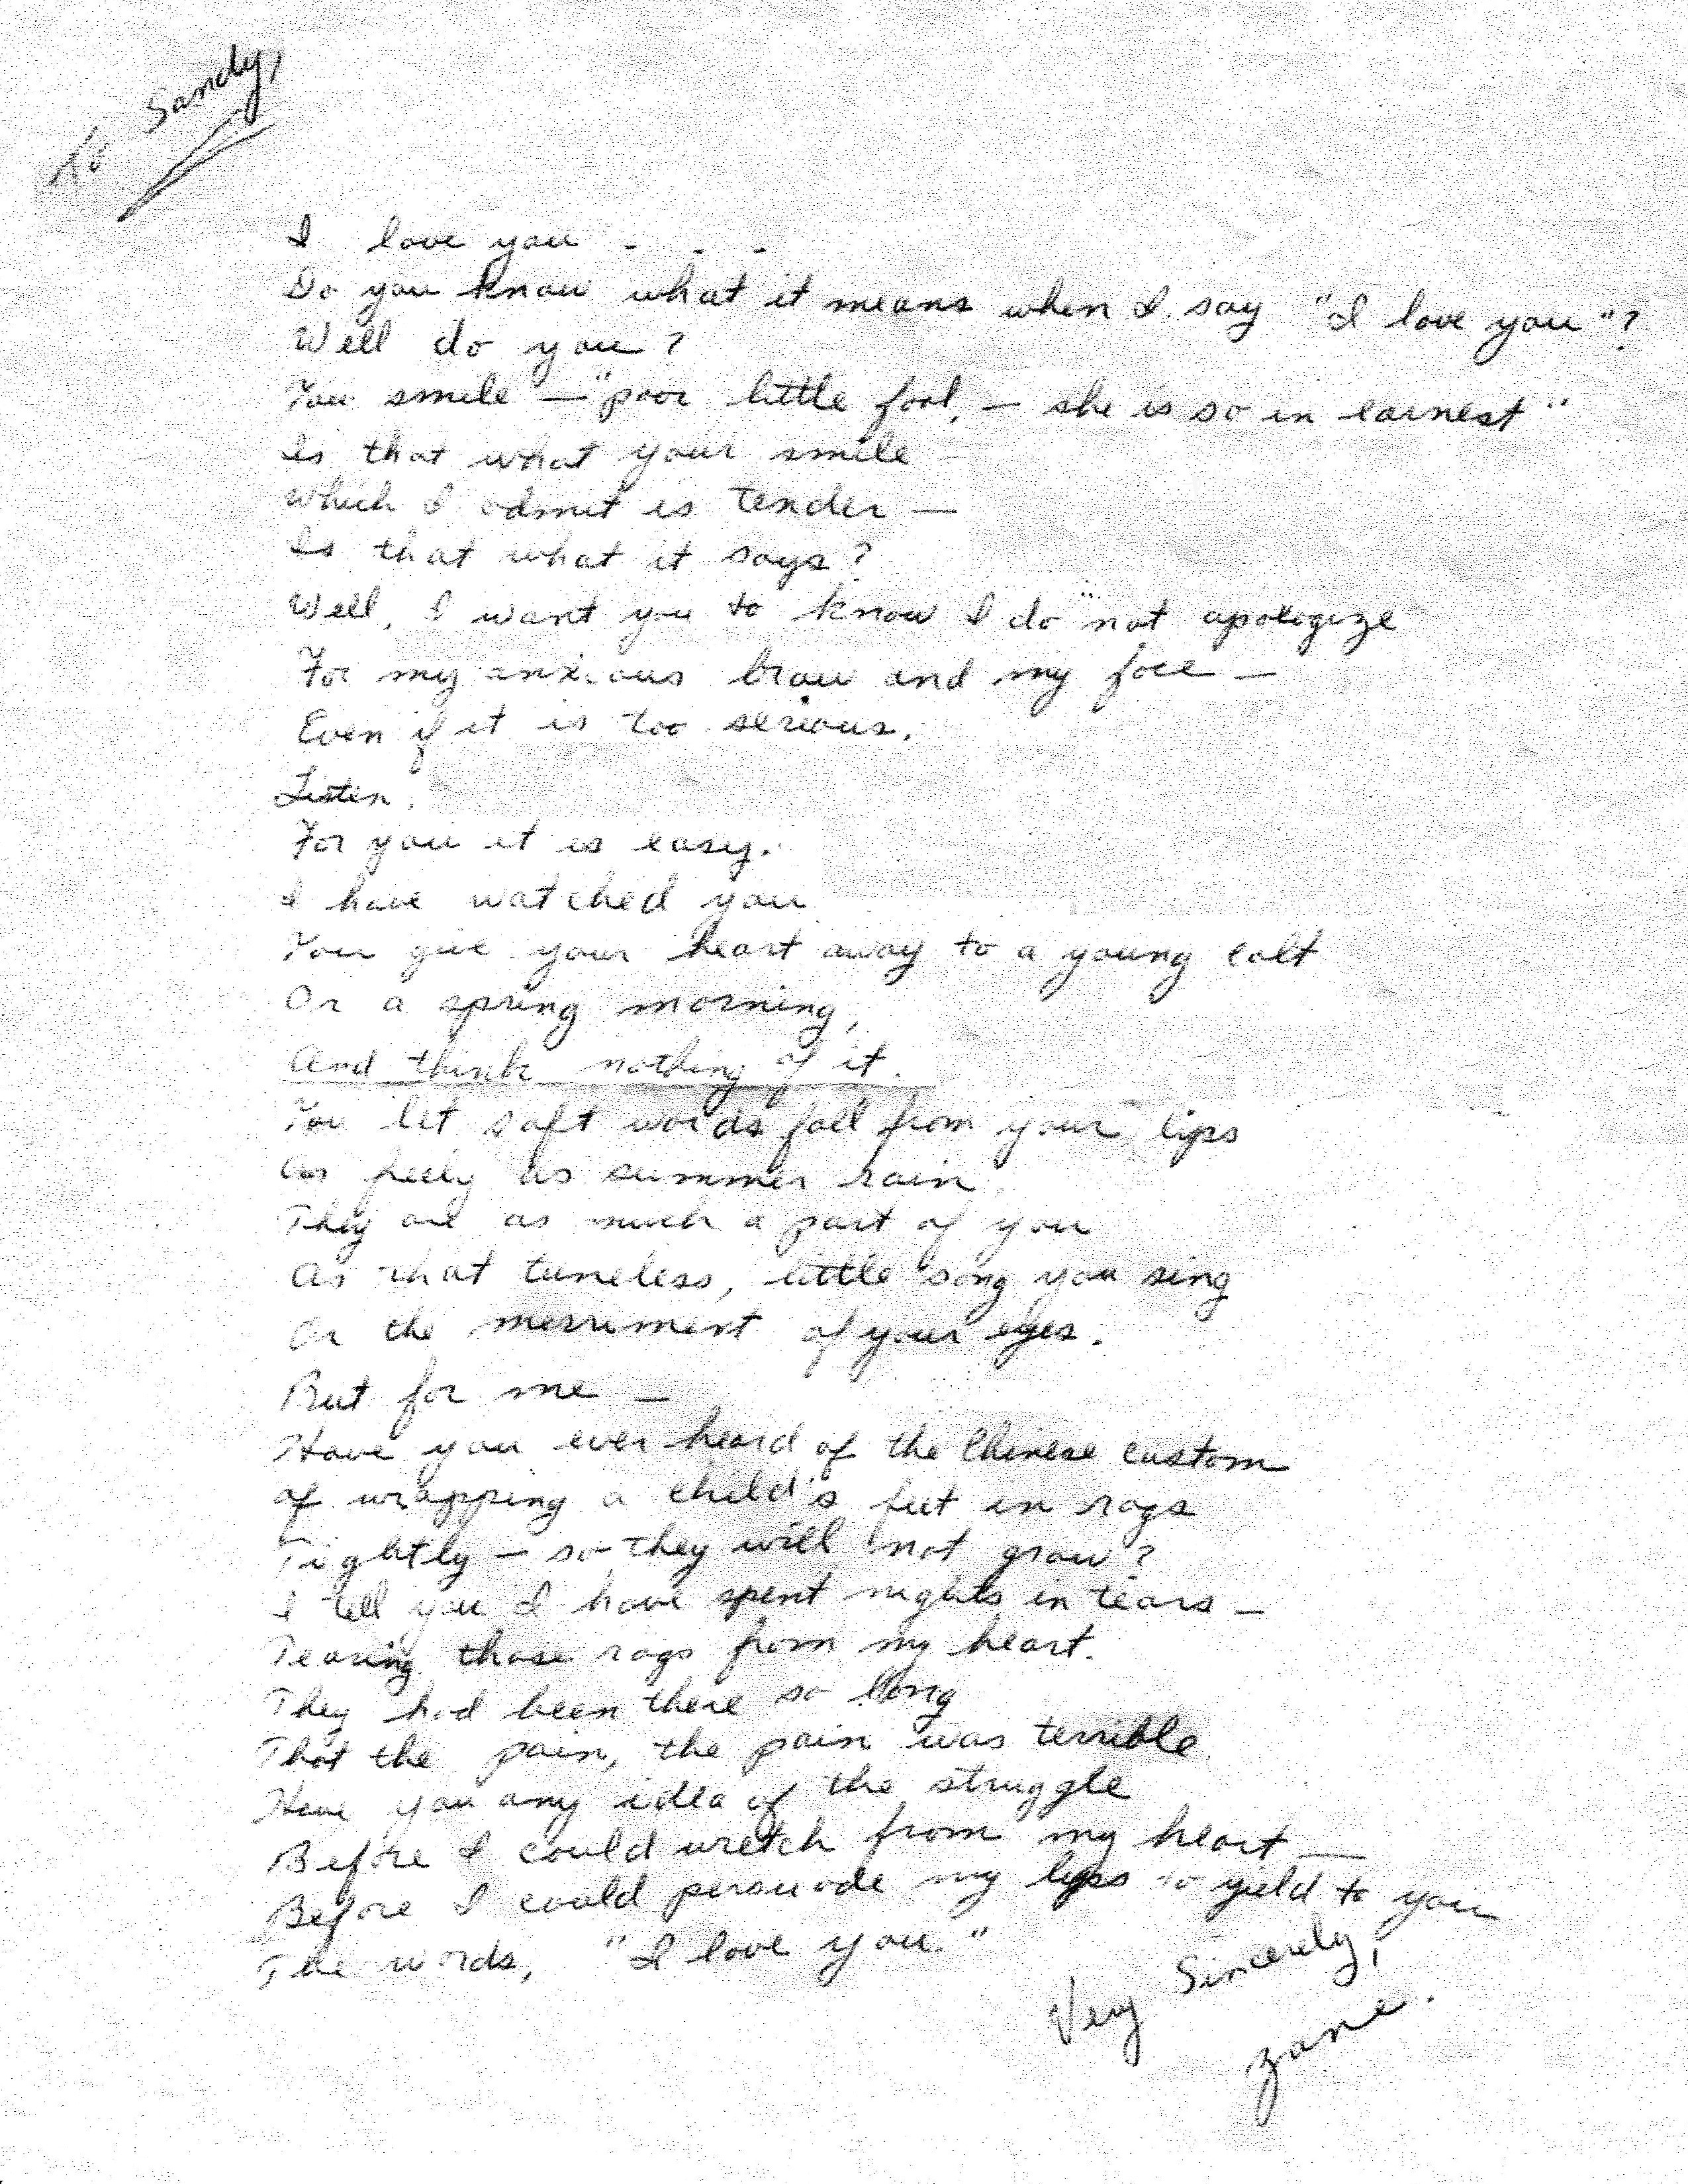 To Sandy,
I love you - - -
Do you know what it means when I say "I love you"?
Well do you?
You smile — "poor little fool, — she is so in earnest"
Is that what your smile —
Which I admit is tender —
Is that what it says?
Well, I want you to know I do "not apologize
For my anxious brow and my face —
Even if it is too serious.
Listen.
For you it is easy.
I have watched you
You give your heart away to a young colt
Or a spring morning,
And think nothing of it.
You let soft words fall from your lips
As freely as summer rain.
They are as much a part of you
As that tuneless, little song you sing
Or the merriment of your eyes.
But for me —
Have you ever heard of the Chinese custom
of wrapping a child's feet in rags
Tightly — so they will not grow?
I tell you I have spent nights in tears —
Tearing those rags from my heart.
They had been there so long
That the pain, the pain was terrible.
Have you any idea of the struggle
Before I could wretch from my heart —
Before I could persuade my lips to yield to you
The words, "I love you."
Very Sincerely,
Zane.